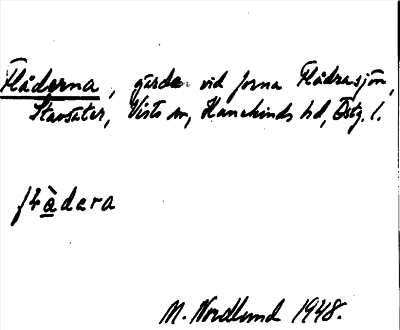 Flåderna, gärde vid forna Flådrasjön,
Stavsäter, Vists sn, Hanekinds hd, Östg. l.
flàdera
M. Nordlund 1948.